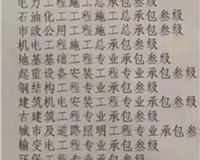 电力工程施工总承包叁级
石油化工工程施工总承包叁级
市政公用工程施工总承包叁级
机电工程施工总承包叁级
地基基础工程专业承包叁级
起重设备安装工程专业承包叁级
钢结构工程专业承包叁级
建筑机电安装工程专业承包叁级
古建筑工程专业承包叁级
城市及道路照明工程专业承包叁级
输变电工程专业承包叁级
环保工程专业承包叁级